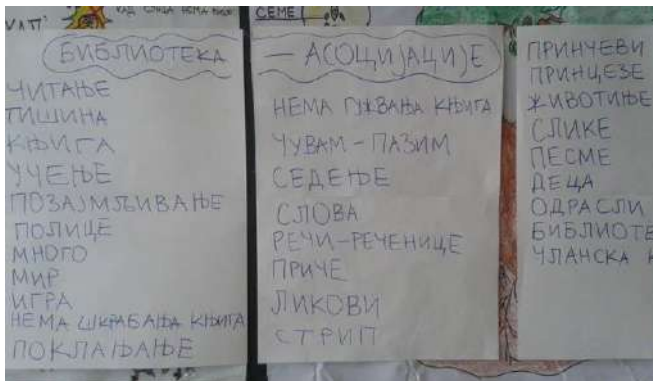 КАП
СЕМЕ
БИБЛИОТЕКА
ЧИТАЊЕ
ТИШИНА
КЊИГА
УЧЕЊЕ
ПОЗАЈМЉИВАЊЕ
ПОЛИЦЕ
МНОГО
МИР
ИГРА
НЕМА ШКРАБАЊА КЊИГА
ПОКЛАЊАЊЕ
— АСОЦИЈАЦИЈЕ
НЕМА ГУЖВАЊА КЊИГА
ЧУВАМ - ПАЗИМ
СЕДЕЊЕ
СЛОВА
РЕЧИ-РЕЧЕНИЦЕ
ПРИЧЕ
ЛИКОВИ
СТРИП
ПРИНЧЕВИ
ПРИНЦЕЗЕ
ЖИВОТИЊЕ
СЛИКЕ
ПЕСМЕ
ДЕЦА
ОДРАСЛИ
БИБЛИОТЕ
ЧЛАНСКА К